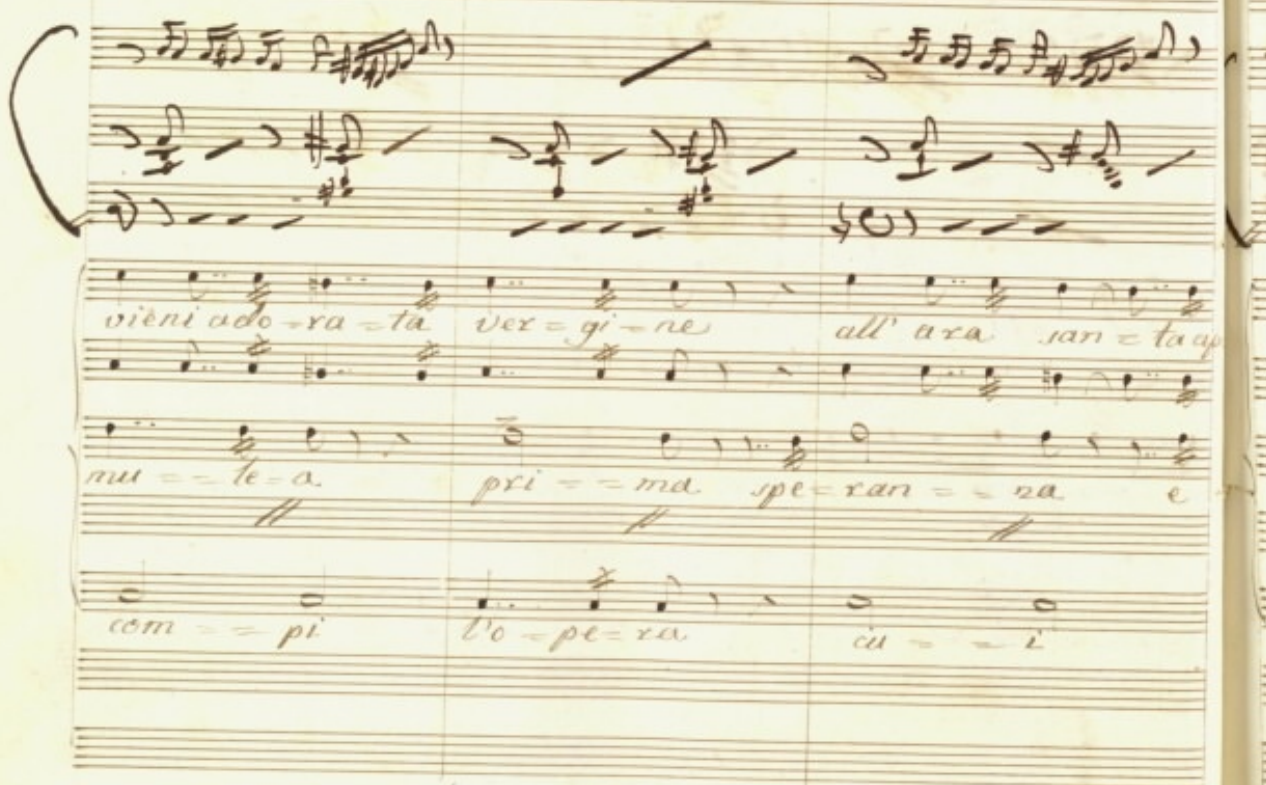 vieni ado=ra=ta ver=gi=ne all' ara san=ta ap
mu==te=a pri==ma spe=ran==za e
com==pi l'o=pe=ra cu==i